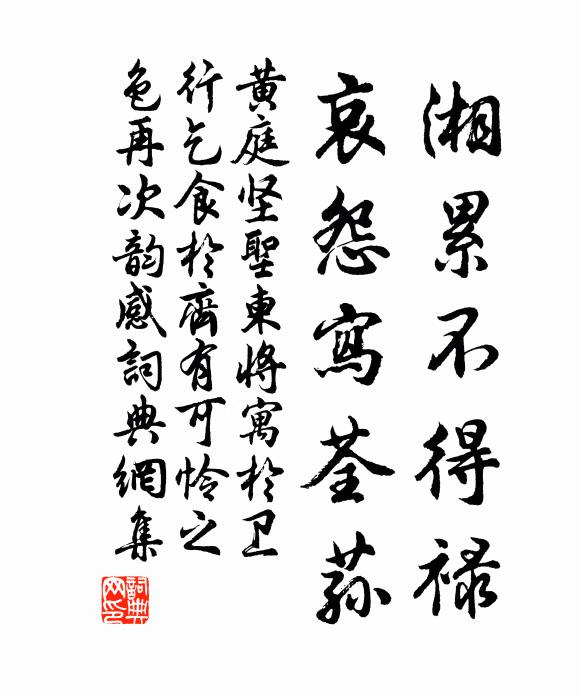 湘累不得禄
哀怨寫荃蓀
黄庭坚聖東將寓於卫
行乞食於齊有可怜之
色再次韵感詞典網集
詞典
网印